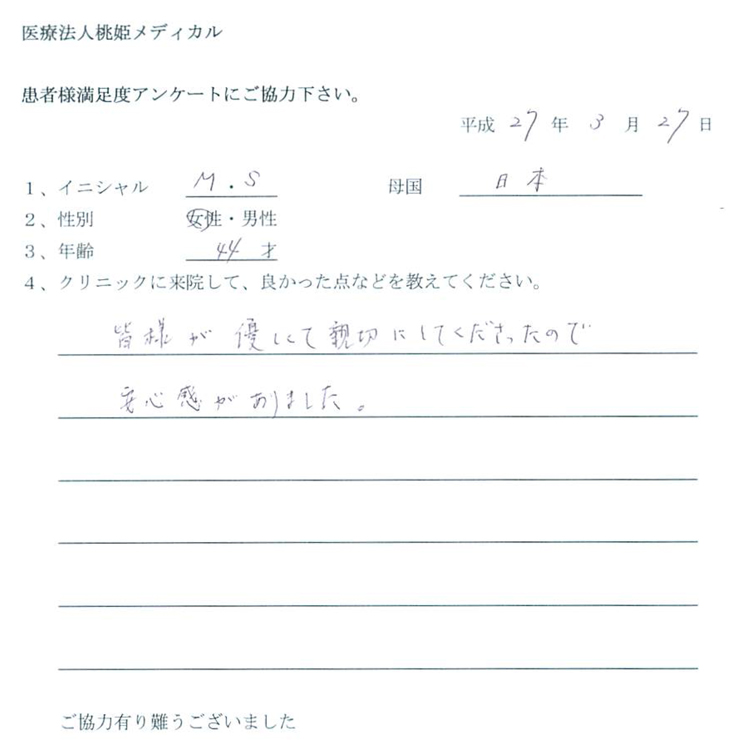 医療法人桃姫メディカル
患者様満足度アンケートにご協力下さい。
平成 27 年 3 月 27 日
1、イニシャル M.S 母国 日本
2、性別 女性・男性
3、年齢 44 才
4、クリニックに来院して、良かった点などを教えてください。
皆様が優しくて親切にしてくださったので
安心感がありました。
ご協力有り難うございました